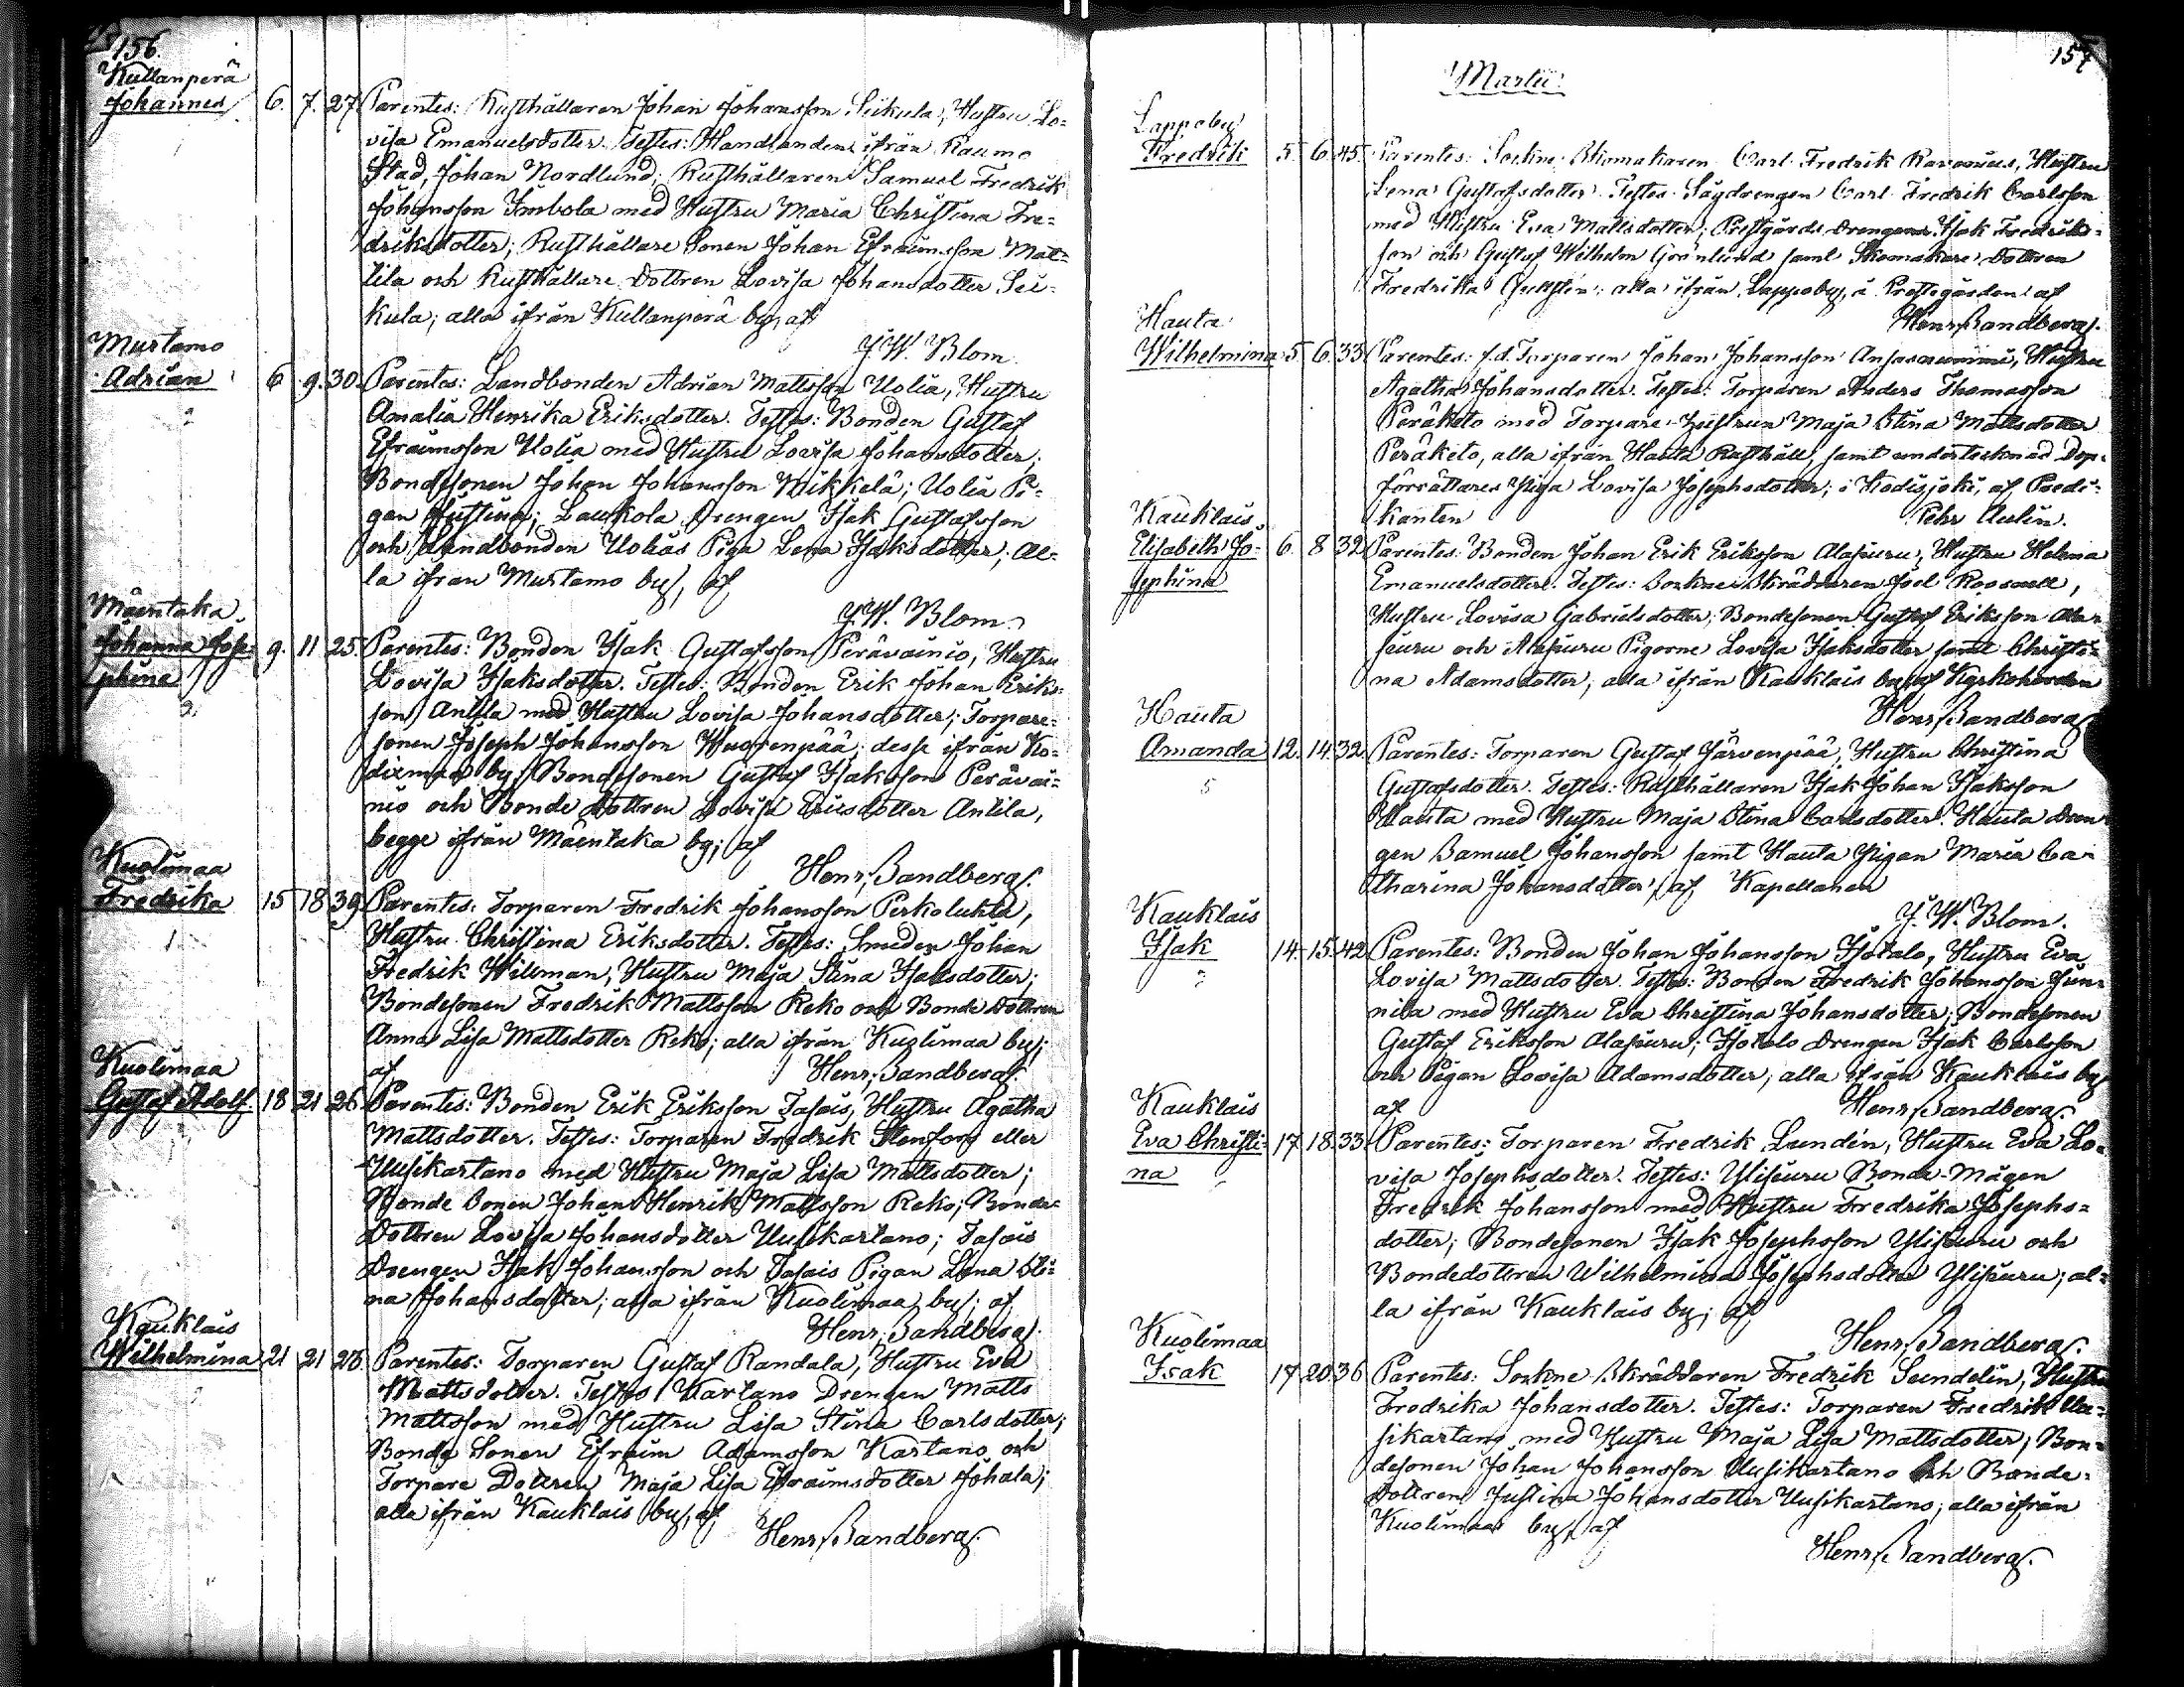 156.
Kullanperä
Johannes 6. 7. 27. Parentes: Rusthållaren Johan Johansson Seikula, Hustru Lo-
visa Emanuelsdotter. Testes: Handlanden ifrån Raumo
Stad, Johan Nordlund; Rusthållaren Samuel Fredrik
Johansson Imbola med Hustru Maria Christina Fre-
driksdotter; Rusthållare Sonen Johan Efraimsson Mat-
tila och Rusthållare Dottren Lovisa Johansdotter Sei-
kula; alla ifrån Kullanperä by, af
J. W. Blom.
Murtamo
Adrian 6 9. 30. Parentes: Landbonden Adrian Mattsson Uolia, Hustru
Amalia Henrika Eriksdotter. Testes: Bonden Gustaf
Efraimsson Uolia med Hustru Lovisa Johansdotter;
Bondesonen Johan Johansson Nikkelä; Uolia Pi-
gan Justina; Laukola Drengen Isak Gustafsson
och Landbonden Uolias Piga Lena Isaksdotter; al-
la ifran Murtamo by, af
J. W. Blom.
Mäentaka
Johanna Jose-
phina 9. 11 25. Parentes: Bonden Isak Gustafsson Perävainio, Hustru
Lovisa Isaksdotter. Testes: Bonden Erik Johan Eriks-
son Antila med Hustru Lovisa Johansdotter; Torpare-
sonen Joseph Johansson Wuorenpää; desse ifrån Ko-
dixmaa by, Bondesonen Gustaf Isaksson Perävai-
nio och Bonde Dottren Lovisa Ericsdotter Antila,
begge ifrån Mäentaka by; af
Henr. Sandberg.
Kuolimaa
Fredrika 15 18 39. Parentes: Torparen Fredrik Johansson Perkoluhta,
Hustru Christina Eriksdotter. Testes: Smeden Johan
Fredrik Willman, Hustru Maja Stina Isaksdotter;
Bondesonen Fredrik Mattsson Reko och Bonde Dottren
Anna Lisa Mattsdotter Reko; alla ifrån Kuolimaa by;
af Henr. Sandberg.
Kuolimaa
Gustaf Adolf. 18 21 26. Parentes: Bonden Erik Eriksson Tasais, Hustru Agatha
Mattsdotter. Testes: Torparen Fredrik Stenfors eller
Uusikartano med Hustru Maja Lisa Mattsdotter;
Bonde Sonen Johan Henrik Mattsson Reko; Bonde-
Dottren Lovisa Johansdotter Uusikartano; Tasais
Drengen Isak Johansson och Tasais Pigan Lena Sti-
na Johansdotter; alla ifrån Kuolimaa by; af
Henr. Sandberg.
Kauklais
Wilhelmina 21 21 28. Parentes: Torparen Gustaf Randala, Hustru Eva
Mattsdotter. Testes Kartano Drengen Matts
Mattsson med Hustru Lisa Stina Carlsdotter;
Bonde Sonen Efraim Adamsson Kartano och
Torpare Dottren Maja Lisa Efraimsdotter Johala;
alla ifrån Kauklais by, af
Henr. Sandberg.
157
Martii
Lappoby
Fredrik 5. 6. 45. Parentes: Sockne-Skomakaren Carl Fredrik Ravonius, Hustru
Lena Gustafsdotter. Testes: Sågdrengen Carl Fredrik Carlsson
med Hustru Eva Mattsdotter; Prestgårds Drengarne Isak Fredriks-
son och Gustaf Wilhelm Grönlund samt Skomakare Dottren
Fredrika ; alla ifrån Lappoby, å Prestegården af
Henr. Sandberg.
Hauta
Wilhelmina 5. 6. 33. Parentes: f.d. Torparen Johan Johansson Anjasnummi, Hustru
Agatha Johansdotter. Testes: Torparen Anders Thomasson
Peräkoto med Torpare-Hustrun Maja Stina Mattsdotter
Peräkoto, alla ifrån Hauta Rusthåll, samt undertecknad Dop-
förrättares Piga Lovisa Josephsdotter; i Kodisjoki, af Predi-
kanten Pehr Aulin.
Kauklais
Elisabeth Jo-
sephina 6 8 32 Parentes: Bonden Johan Erik Eriksson Alapuuru, Hustru Helena
Emanuelsdotter. Testes: Sockne-Skräddaren Joel Roosnell,
Hustru Lovisa Gabrielsdotter; Bondesonen Gustaf Eriksson Ala-
puuru och Alapuuru Pigorne Lovisa Isaksdotter samt Christi-
na Adamsdotter; alla ifrån Kauklais by, af Kyrkoherden
Henr. Sandberg
Hauta
Amanda 12. 14. 32. Parentes: Torparen Gustaf Järvenpää, Hustru Christina
Gustafsdotter. Testes: Rusthållaren Isak Johan Isaksson
Hauta med Hustru Maja Stina Carlsdotter. Hauta Dren-
gen Samuel Johansson samt Hauta Pigan Maria Ca-
tharina Johansdotter; af Kapellanen
J. W. Blom.
Kauklais
Isak 14. 15. 42. Parentes: Bonden Johan Johansson Isotalo, Hustru Eva
Lovisa Mattsdotter. Testes: Bonden Fredrik Johansson Jun-
nila med Hustru Eva Christina Johansdotter; Bondesonen
Gustaf Eriksson Alapuuru; Isotalo Drengen Isak Carlsson
och Pigan Lovisa Adamsdotter; alla ifrån Kauklais by
af Henr. Sandberg.
Kauklais
Eva Christi-
na 17. 18. 33. Parentes: Torparen Fredrik Lundén, Hustru Eva Lo-
visa Josephsdotter. Testes: Ylipuuru Bonde-Mågen
Fredrik Johansson med Hustru Fredrika Josephs-
dotter; Bondesonen Isak Josephsson Ylipuuru och
Bondedottren Wilhelmina Josephsdotter Ylipuuru; al-
la ifrån Kauklais by; af
Henr. Sandberg.
Kuolimaa
Isak 17. 20. 36 Parentes: Sockne-Skräddaren Fredrik Sundelin, Hustru
Fredrika Johansdotter. Testes: Torparen Fredrik Uu-
sikartano med Hustru Maja Lisa Mattsdotter; Bon-
desonen Johan Johansson Uusikartano och Bonde-
Dottren Justina Johansdotter Uusikartano; alla ifrån
Kuolimaa by, af
Henr. Sandberg.